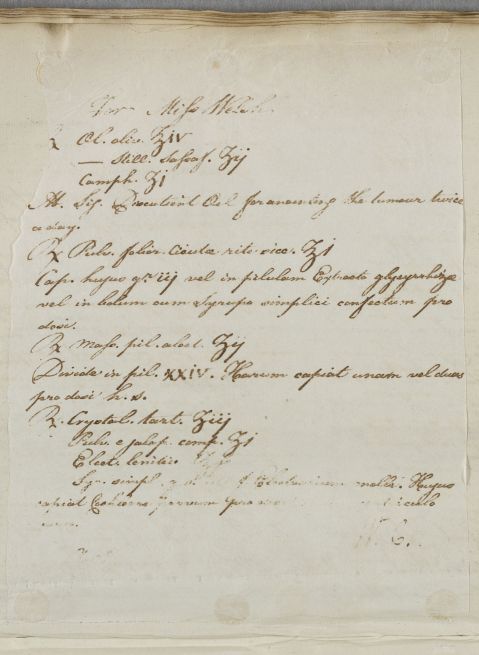 For Miss Welsh
℞ Ol. oliv. ℥iv
— Still. Sassaf. ʒij
Camph. ʒi
M. Sig. Discutient Oil for anointing the tumour twice
a day.
℞ Pulv. folior. Cicutæ rite sicc. ʒi
Cap. hujus gr. iij vel in pilulam Extracto glycyrrhizæ
vel in bolum cum Syrupo simplici confectum pro
dosi.
℞ Mass. pil. aloet. ʒij
Divide in pil. XXIV. Harum capiat unam vel duas
pro dosi h. s.
℞. Crystal. tart. ʒiij
Pulv. e jalap. comp. ʒi
Elect. lenitiv.
Syr. simpl. Electuarium molle. Hujus
capiat